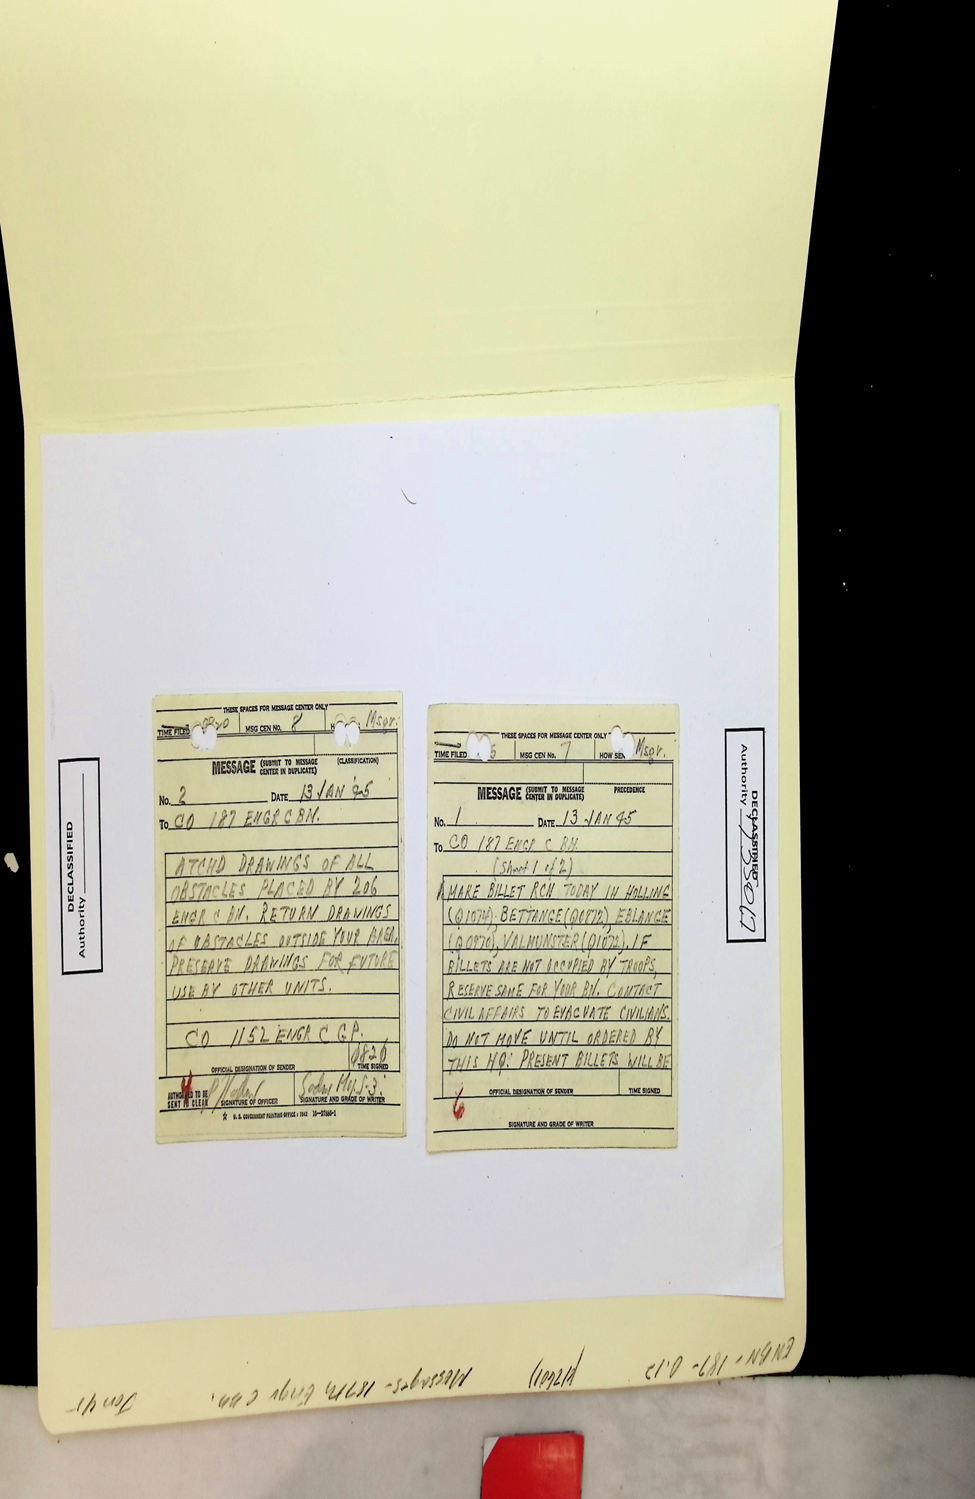 THESE SPACES FOR MESSAGE CENTER ONLY
TIME FILED 0920 MSG CEN NO. 8 Msgr.
MESSAGE (SUBMIT TO MESSAGE CENTER IN DUPLICATE) (CLASSIFICATION)
No. 2 DATE 13 JAN 45
To CO 187 ENGR C BN.
ATCHD DRAWINGS OF ALL
OBSTACLES PLACED BY 206
ENGR C BN. RETURN DRAWINGS
OF OBSTACLES OUTSIDE YOUR AREA,
PRESERVE DRAWINGS FOR FUTURE
USE BY OTHER UNITS.
CO 1152 ENGR C GP.
0820
OFFICIAL DESIGNATION OF SENDER TIME SIGNED
4
AUTHORIZED TO BE SENT IN CLEAR SIGNATURE OF OFFICER SIGNATURE AND GRADE OF WRITER
☆ U. S. GOVERNMENT PRINTING OFFICE : 1942
THESE SPACES FOR MESSAGE CENTER ONLY
TIME FILED MSG CEN No. 7 HOW SEN Msgr.
MESSAGE (SUBMIT TO MESSAGE CENTER IN DUPLICATE) PRECEDENCE
No. 1 DATE 13 JAN 45
To CO 187 ENGR C BN.
(Sheet 1 of 2)
MAKE BILLET RCN TODAY IN HOLLING
(Q1074), BETTANGE (Q0872), EBLANGE
(Q0870), VALMUNSTER (Q1072). IF
BILLETS ARE NOT OCCUPIED BY TROOPS,
RESERVE SAME FOR YOUR BN. CONTACT
CIVIL AFFAIRS TO EVACUATE CIVILIANS.
DO NOT MOVE UNTIL ORDERED BY
THIS HQ. PRESENT BILLETS WILL BE
OFFICIAL DESIGNATION OF SENDER TIME SIGNED
6
SIGNATURE AND GRADE OF WRITER
DECLASSIFIED
Authority
DECLASSIFIED
Authority 735017
ENBN-187-0.12 Messages-187th Engr C Bn. Jan 45